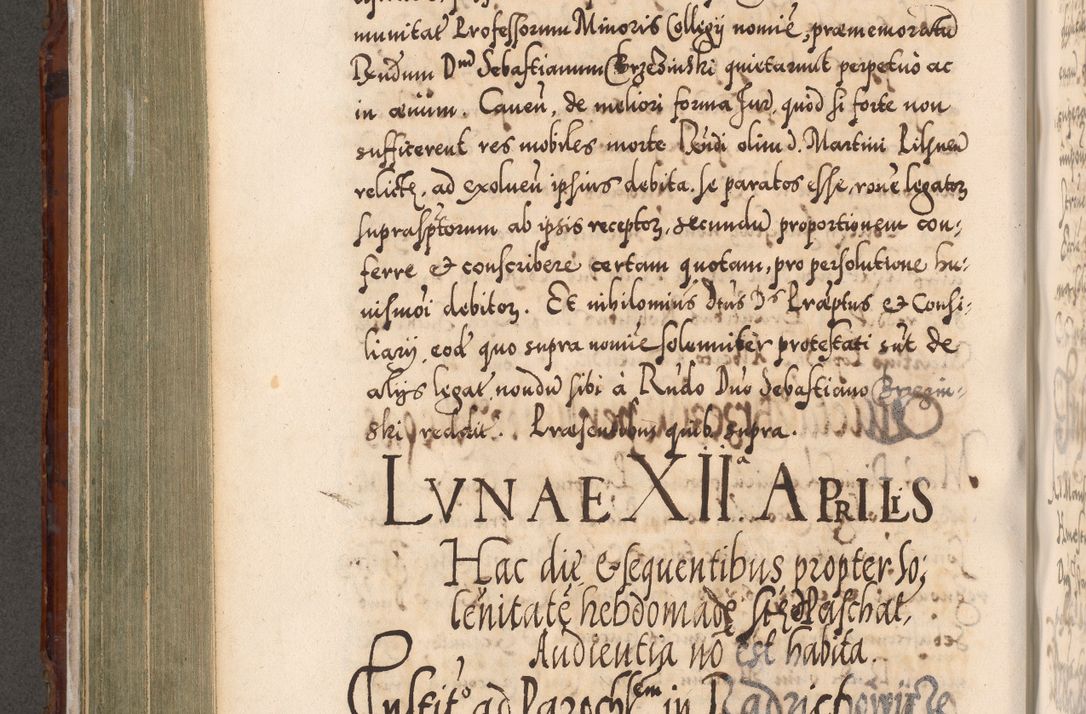 munitat Professorum Minoris Collegij nomie, præmemoratū
Rndum Dnū Sebastianum Brzezinski quietarunt perpetuò ac
in ævium. Caveń, de meliori forma Jur, quòd si forte non
sufficerent res mobiles morte Rńdi olim d. Martini
relictę, ad exolveń ipsius debita. se paratos esse, rone legatoꝝ
suprasptorum ab ipsis receptoꝝ, secundū proportionem con-
ferre et conscribere certam quotam, pro persolutione hu-
iusmoi debitoꝝ. Et nihilominus dtus Ds Præptus et Consi-
liarij, eod quo supra nomie solenniter protestati sut de
alijs legat, nondū sibi à Rndo Dno Sebastiano Brzezin-
ski reddit. Præsentibus quib supra.
LVNAE XIIa. APRILIS
Hac die & sequentibus propter so-
lenitatę hebdomadę Paschal,
Audientia nō est habita.
Instito ad Paroch in